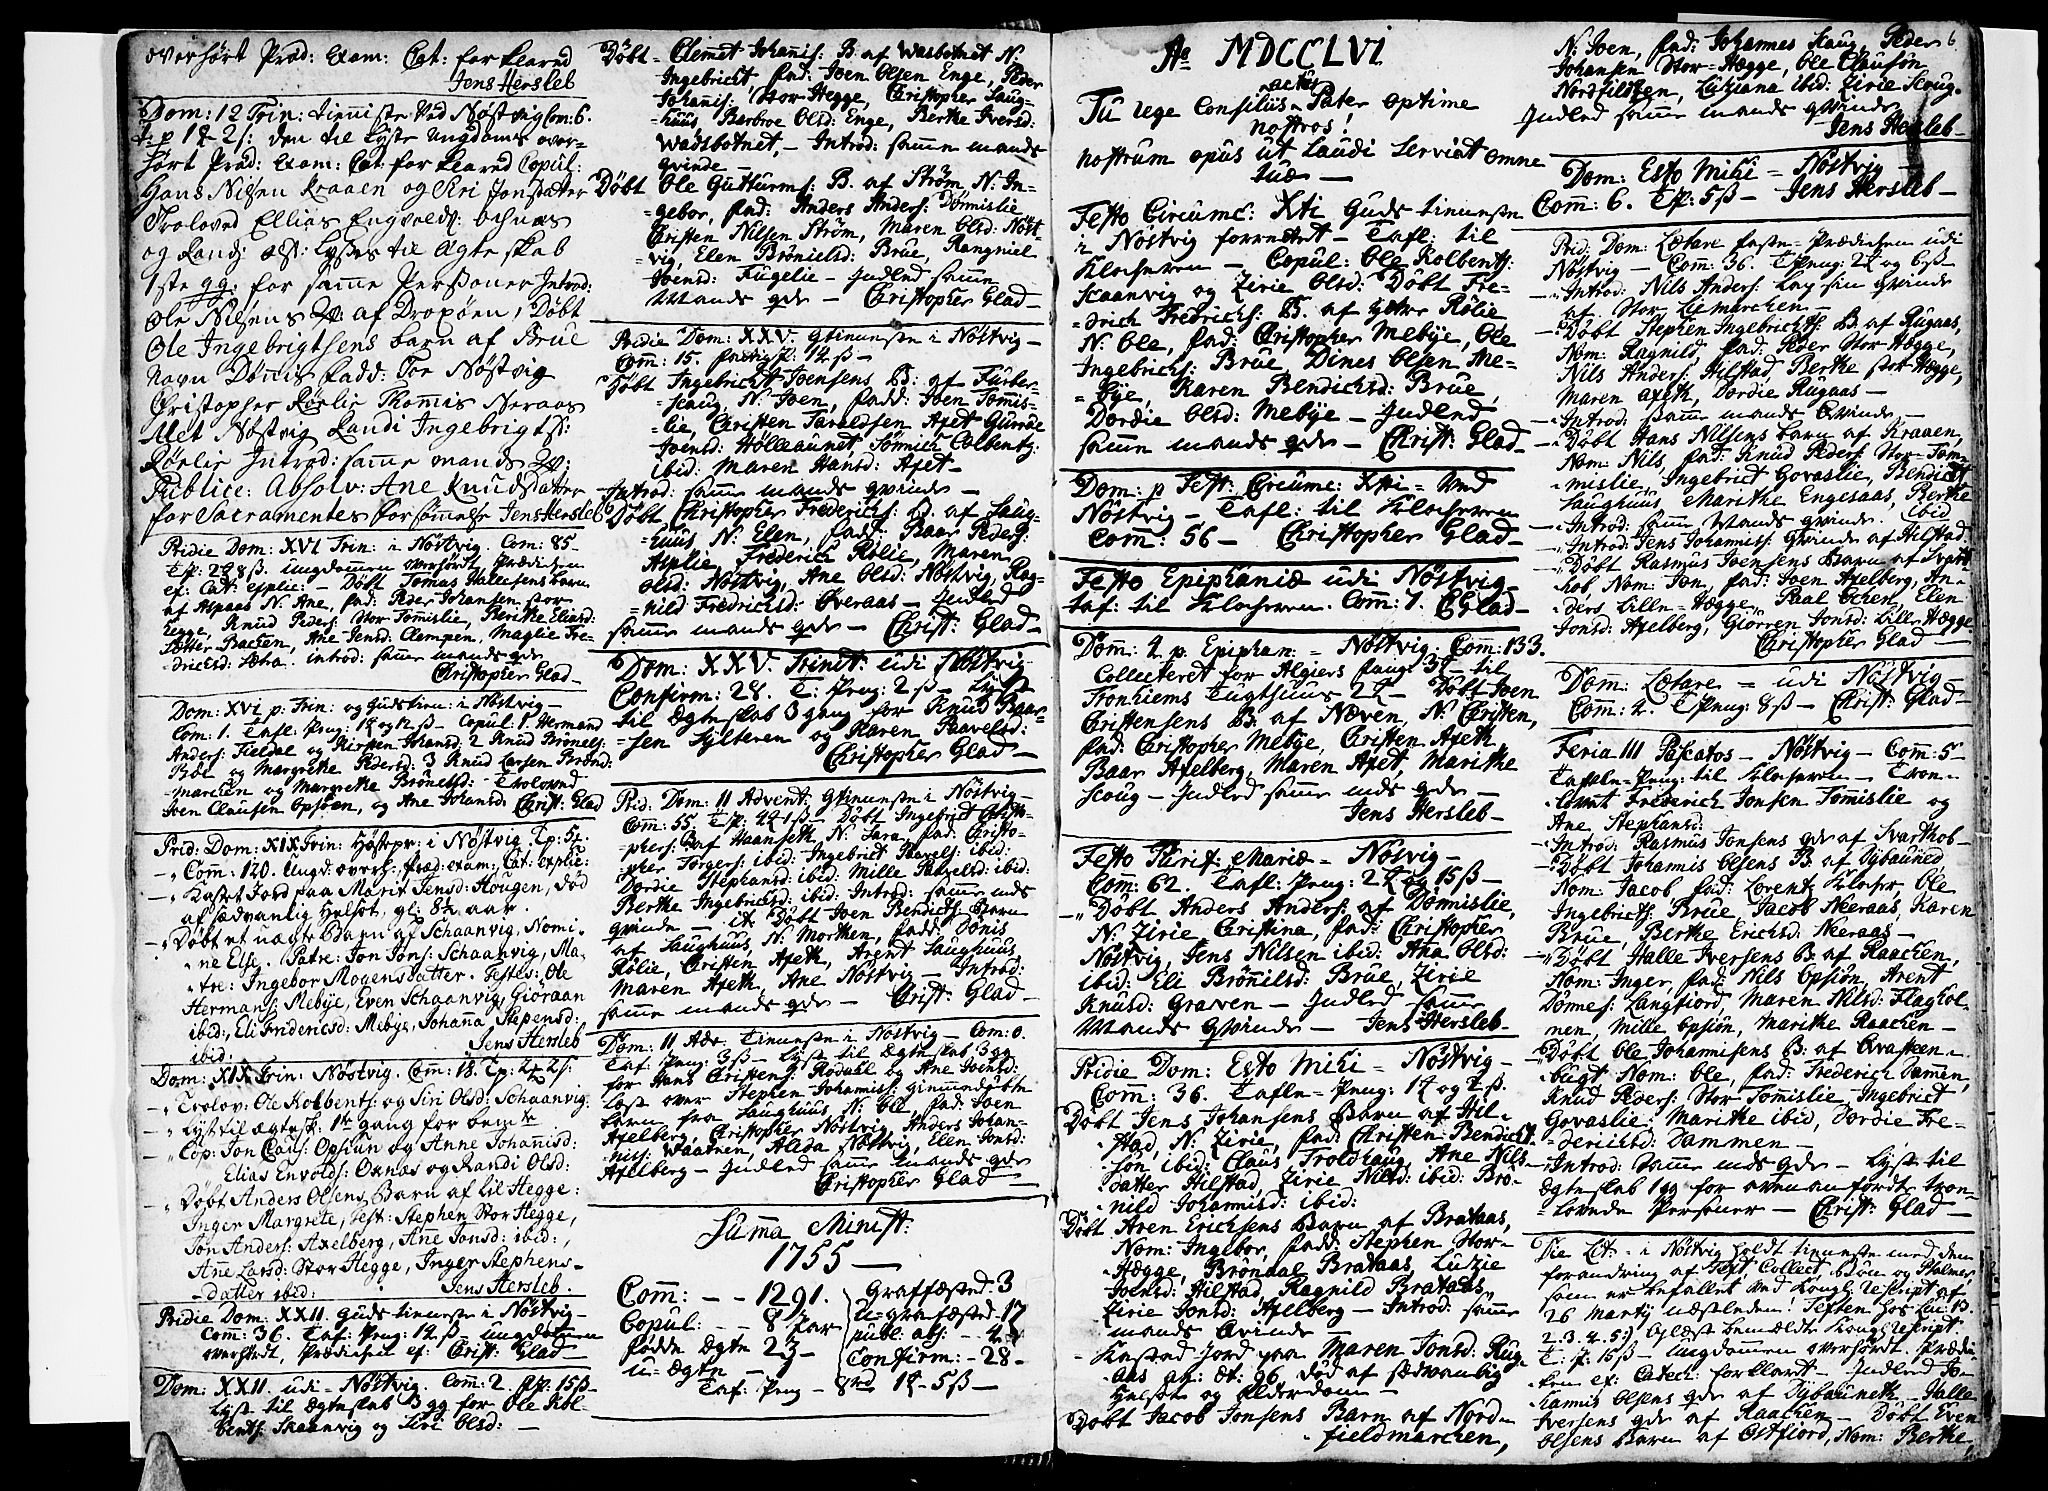 overhørt Præd: Exam: Cat: forklared
Jens Hersleb
Dom: 12 Trin: tienniste ved Nøstvig Com: 6.
den til lyste ungdoms over-
hørt Præd: Exam: Cat: forklared Copul:
Hans Nilsen Kraaen og Siri Jonsdatter
Troloved Ellias Engvolds: ochnæs
og Randj Ols: lystes til Ægteskab
1ste gg: for samme Personer Introd:
Ole Nilsens af Dropøen, Døbt
Ole Ingebrigtsens barn af Brue
navn Dønis fadd: Tor Nøstvig
Christopher Rørlie Thomis Neraas
Alet Nøstvig Randi Ingebrigts:
Rørlie Introd: same mands
Publice: Absolv: Ane Knudsdatter
for Sacramentes forsømelse Jens Hersleb
Pridie Dom: XVI Trin: i Nøstvig. Com: 85-
ungdommen overhørt Prædichen
ef: Cat: explic: - Døbt Tomas Hallesens barn
af Aspaas N. Ane, fad: Peder Johansen stor
Hegge, Knud Peders: Stor Tomislie, Berithe Eliæd:
datter Bachen, Ane Jensd: Clempen, Maglie Fre-
drichsd: Sætra. introd: samme mands qde
Christopher Glad-
Dom: XVI p: Trin: og Gudstien: i Nøstvig-
Com: 1. Tafl: Peng: 1 og 12 ß- Copul: 1. Herman
Anders: Fieldal og Kirsten Johansd: 2 Knud Brønels:
Bøe og Margrethe Pedersd: 3 Knud Larsen Brønd:
-marchen og Margrethe Brønelsd: Troloved
Joen Clausen Opsøen, og Ane Johansd: Christ: Glad
Prid: Dom: XIX Trin: Høstepr: i Nøstvig. Tp: 5
-"Com: 120. Ungd: overh: præd: exam: Cat: explic:
-"Kastet Jord paa Marit Jensd: Hougen, død
af sædvanlig Helsot, gl: 8½ aar.
-"Døbt et uægte Barn af Schaanvig, Nomi-
ne Else. Patre: Jon Jons: Schaanvig, Ma-
tre: Ingebor Mogensdatter. Testes: Ole
Hermans: Mebye, Even Schaanvig, Giøraan
ibid; Eli Fridericsd: Mebye, Johanna Stepensd:
ibid. Jens Hersleb
Dom: XIX Trin: Nøstvig. Com: 18. Tp:
-"Trolov: Ole Kolbents: og Siri Olsd: Schaanvig.
-"Lyst til ægtesk: 1te gang for bem te
-"Cop: Jon Claus: Opsiun og Anne Johanisd:
Elias Envolds: Oxnas og Randi Olsd:
-"Døbt Anders Olsens Barn af Lil Hegge:
Inger Margrete, Test: Stephen Stor Hegge,
Jon Anders: Axelberg, Ane Jonsd: ibid:,
Anne Larsd: Stor Hegge, Inger Stephens-
-datter ibid: Jens Hersleb.
Pridie Dom: XXII. Guds tieneste i Nøstvig-
Com: 36. Taf: Peng: ungdommen
overhørdt, Prædichet ef: Christ: Glad-
Dom: XXII. udi- Nøstvig. Com: 2 15 ß-
Lyst til Ægteskab 3 gg for Ole Kol-
bents: Skaanvig og Siri Olsd: -
Døbt- Clemet Johanis: B. af Wasbotnet N.
Ingebricht, fad: Joen Olsen Enge, Peder
Johanis: Stor Hegge, Christopher Saug-
-huus, Barbroe Olsd: Enge, Berthe Iversd:
Wadsbotnet,- Introd: samme mands
qvinde-
Døbt Ole Gutturms: B. af Strøm, N: In-
-gebor, fad: Anders Anders: Dønmislie,
Christen Nilsen Strøm, Maren Olsd: Nøst-
-vig Elen Brønielsd: Brue, Rangniel
Joensd: Fugelie- Indled samme
Mands qde - Christopher Glad-
Pridie Dom: XXV. Gtienesten i Nøstvig-
Com: 15.
Døbt Ingebricht Joensens B: af Furber-
-scaug N: Joen, fadd: Joen Tomis-
-lie, Christen Taraldsen Axet Gurroe
Joensd: Hølleaunet, Colbents:
ibid: Maren Hansd: Axet-
Introd: samme mands qvinde-
Døbt Christopher Frederichs: B. af Saug-
-huus N: Elen, fadd: Baar Peders:
Asplie, Frederich Rølie, Maren
Olsd: Nøstvig, Ane Olsd: Nøstvig, Rag-
-nild Fredrichsd: Overaas- Indled
samme mands qde - Christ: Glad-
Dom: XXV. Trinit: udi Nøstvig-
Confirm: 28. T: Peng: 2 ß- Lyst
til Ægteskab 3 gang for Knud Baar-
-sen Sylteren og Karen Paavelsd:
Christopher Glad-
Prid: Dom: II Advent: Gtienesten i Nøstvig-
Com: 55. Døbt Ingebrict Christo-
-phers: B af Haanseth N. Sara, fad: Christo-
-pher Torgers: ibid: Ingebrict Paavels: ibid:
Dordie Stephansd: ibid: Mille Paavelsd: ibid:
Berthe Ingebricsd: ibid: Introd: samme mds
qvinde- it: Døbt Joen Bendicts: Barn
af Saughuus, N: Morthen, fadd: Dønis
Rølie, Christen Axeth, Arent Saughuus
Maren Axeth, Ane Nøstvig- Introd:
samme mands qde - Christ: Glad-
Dom: II Adv. Tienesten i Nøstvig- Com: 0.
Taf: Peng: 3 ß- Lyst til Ægteskab 3 gg
for Hans Christens: Rødahl og Ane Joensd:
læst over Stephen Johanis: hjemmedøbte
barn fra Saughuus N: Ole, fad: Joen
Axelberg, Christopher Nøstvig, Anders Johan-
-nis: Waatnen, Alida Nøstvig, Elen Jonsd:
Axelberg- Indled samme mands qde
Christopher Glad-
Summa Minist:
1755-
Com: - - 1291.
Copul: - - 8 Par
fødde Ægte 23-
u=ægte -
Graffæsted. 3
U=grafæsted. 17
publ. abs: -
Confirm: - 28-
Taf: Peng - 8 rd 5 ß-
Ao MDCCLVI
Tu rege Consiliis actus Pater optime
nostros!
nostrum opus ut Laudi Serviat omne
tuæ-
Festo Circumc: Xti Guds tienesten
i Nøstvig forrettet- Tafl: til
Klocheren- Copul: Ole Kolbents:
Scaanvig og Zirie Olsd: Døbt Fre-
-drich Fredrichs: B. af ytre Rølie
N: Ole, fad: Christopher Mebye, Ole
Ingebrichs: Brue, Dines Olsen Me-
-bye, Karen Bendichsd: Brue,
Dordie Olsd: Mebye- Indled
samme mands qde - Christ: Glad-
Dom: p Fest: Circume: Xti= Ved
Nøstvig- Tafl: til Klocheren
Com: 56- Christopher Glad-
Festo Epiphaniæ udi Nøstvig-
taf: til Klocheren. Com: 7. CGlad-
Dom: 4 p. Epiphan: = Nøstvig. Com: 133.
Collecteret for Algiers fang: til
Tronhiems Tugthuus Døbt Joen
Christensens B: af Næven, N: Christen,
fad: Christopher Mebye, Christen Axeth
Baar Axelberg, Maren Axet, Marithe
Scoug- Indled samme mds qde -
Jens Hersleb-
Festo Purif: Mariæ= Nøsvig-
Com: 62. Tafl: Peng: og 15 ß-
-"Døbt Anders Anders: af Dønmislie,
N. Zirie Christina, fad: Christopher
Nøstvig, Jens Nilsen ibid: Ana Olsd:
ibid: Eli Brønnilsd: Brue, Zirie
Knusd: Graven- Indled samme
Mands Qvinde- Jens Hersleb-
Pridie Dom: Esto Mihi- Nøstvig-
Com: 36. Tafle= Peng:
Døbt Jens Johansens Barn af Hil-
-stad, N: Zirie, fad: Christen Bendict-
-søn ibid: Claus Troldhaug, Ane Nils-
-datter Hilstad, Zirie Nilsd: ibid: Brø-
-nild Johanisd: ibid:
Døbt Aren Erichsens Barn af Brataas,
Nom: Ingebor, fadd: Stephen Stor-
-Hægge, Brøndal Brataas, Ludzie
Joensd: Hilstad, Ragnild Brataas
Zirie Jonsd: Axelberg- Introd: samme
mands Qvinde-
- Kasted Jord paa Maren Jonsd: Rug-
-aas at: æt: 96, død af sædvanlig
Helsot og Alderdom-
Døbt Jacob Jonsens Barn af Nord-
-fieldmarchen,
6
N: Joen, fad: Johannes Scaug, Peder
Johansen Stor-Hægge, Ole Clausøn
Nordfildsen, Lutziana ibid: Zirie Scoug.
Indled samme mands qvinde
Jens Hersleb-
Dom: Esto Mihi= Nøstvig-
Com: 6. Tp: 5 ß- Jens Hersleb-
Prid: Dom: Lætare faste= Prædichen udi
Nøstvig- Com: 36. og 6 ß-
-"Introd: Nils Anders: Lagsin Qvinde
af Stor Lismarchen-
-Døbt Stephen Ingebrichts: B: af Rugaas,
Nom: Ragnild, fad: Peder Stor Hægge,
Nils Anders: Hilstad, Berthe stor Hægge,
Maren Axeth, Dordie Rugaas-
-Introd: samme mands Qvinde,-
-Døbt Hans Nilsens Barn af Kraaen,
Nom: Nils, fad: Knud Peders: Stor-Tom-
-mislie, Ingebrict Govaslie, Bendict
Saughuus Marithe Engesaas, Berthe
-Introd: samme Mands qvinde. ibid
-"Introd: Jens Johaniss: Qvinde af Hilstad.
-Døbt Rasmus Joensens Barn af Svart-
hob, Nom: Jon, fad: Joen Axelberg, An-
-ders Lille-Hægge, Paal Ochen, Elen
Jonsd: Axelberg, Giørren Jonsd: Lille Hægge
Christopher Glad-
Dom: Lætare = udi Nøstvig-
Com: 4. T Peng: 8 ß- Christ: Glad-
Feria III Pascatos- Nøstvig- Com: 5-
Tafle-Peng: til Klocheren- Tron-
-lovet Frederich Jonsen Tommislie og
Ane Stephansd:
-Introd: Rasmus Jonsens qde af Svarthob-
-Døbt Johannis Olsens B. af Dybauned
Nom: Jacob fad: Lorentz Klocher, Ole
Ingebricts: Brue, Jacob Neeraas, Karen
Brue, Berthe Erichsd: Neeraas-
-"Døbt Halle Iversens B. af Raachen,
Nom: Inger, fad: Nils Opsiøn, Arent
Dønnes: Langfiord, Maren Nilsd: Flaghol-
-men, Mille Opsiøn, Marithe Raachen-
-Døbt Ole Johannisens B: af Qvasteen-
-bugt Nom: Ole, fad: Frederich Dammen,
Knud Peders: Stor Tommislie, Ingebrict
Govaslie, Marithe ibid, Dordie Fre-
-derichsd: Dammen-
-Introd: Samme mds qde - Lyst til
Ægteskab 1 gg for ovenanførdt tron-
-lovede Personer- Christ: Glad-
Die Lit:- i Nøstvig holdt tieneste med den
forandring af Text, Collect, Bøn og Psalmer,
som er befallet ved Kongl: rescript af
26 Martij næstleden: Texten hos Luc: 13.
2. 3. 4. 5.) Oplæst bemældte Kongl: rescript.
T: P: 15 ß- ungdommen overhørdt. Prædi-
ken ef: Catech: forklaret- Indled Jo-
-hannis Olsens qde af Dybauneth- Halle
Iversens qde af Raachen- Døbt Even
Olsens Barn af Ostfiord, Nom: Berthe,